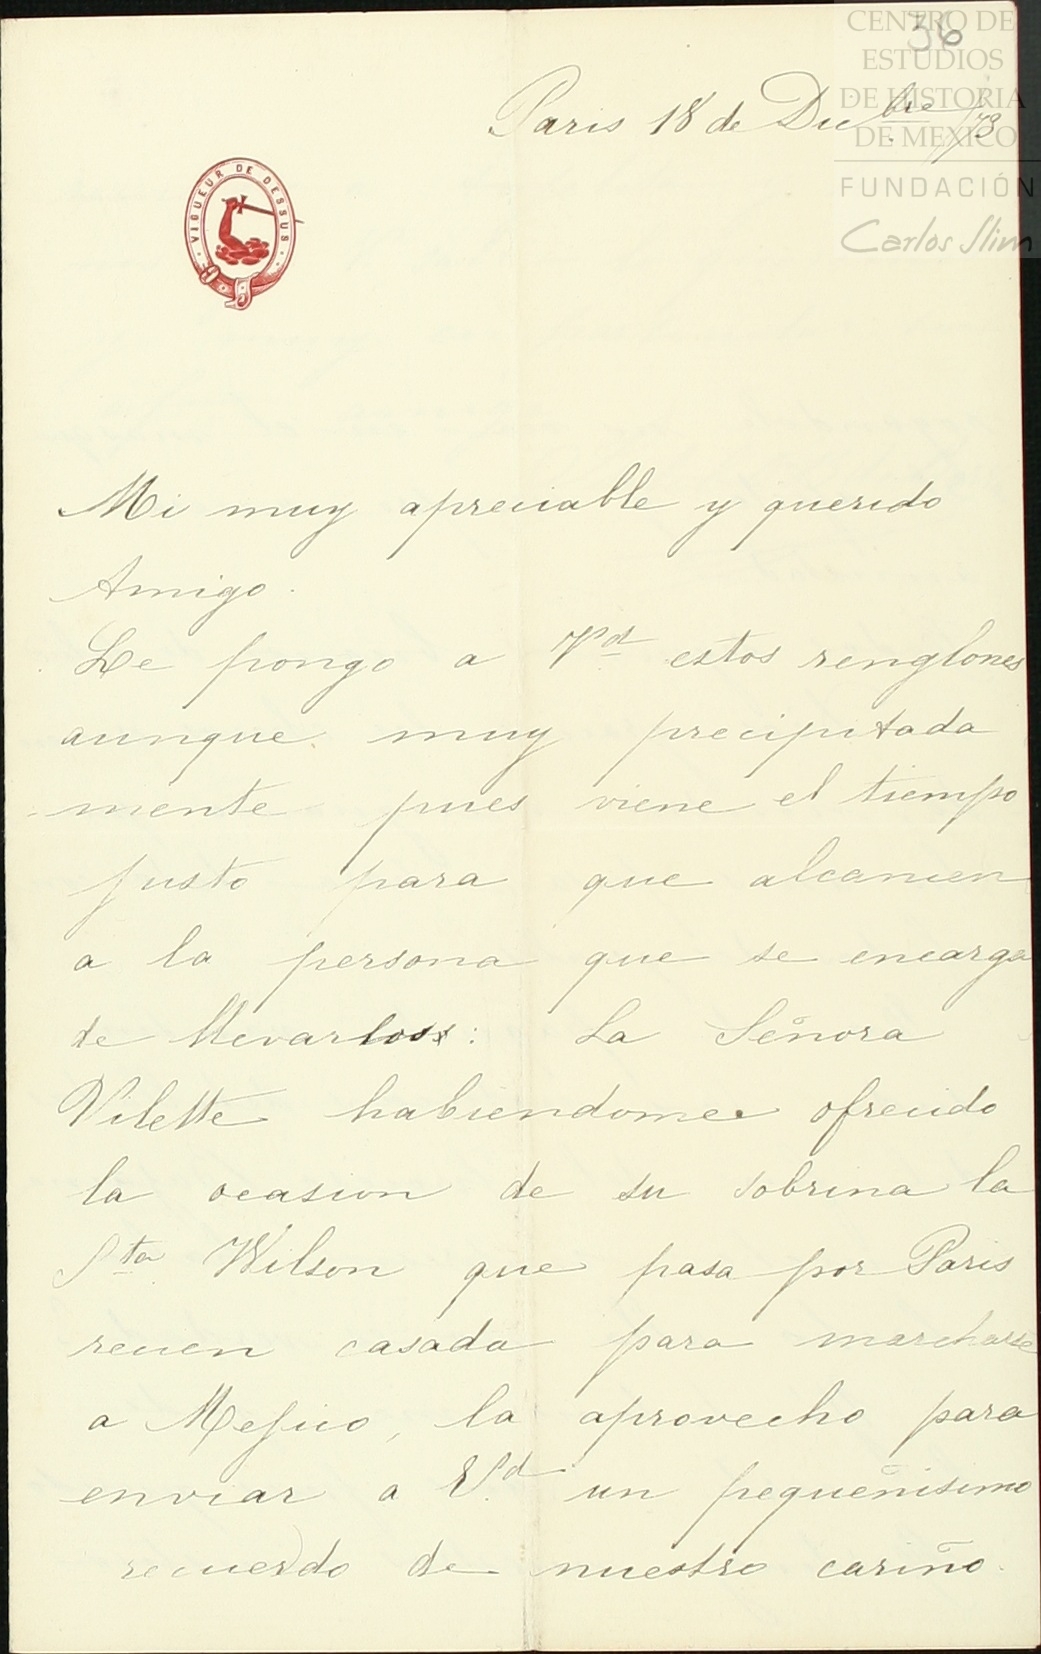 36
CENTRO DE
ESTUDIOS
DE HISTORIA
DE MEXICO
FUNDACIÓN
Carlos Slim
Paris 18 de Dicbre /73
VIGUEUR DE DESSUS
Mi muy apreciable y querido
Amigo.
Le pongo a Vd estos renglones
aunque muy precipitada
mente pues viene el tiempo
justo para que alcancen
a la persona que se encarga
de llevarlos: La Señora
Vilette habiendome ofrecido
la ocasion de su sobrina la
Sta Wilson que pasa por Paris
recien casada para marcharse
a Mejico, la aprovecho para
enviar a V.d un pequeñisimo
recuerdo de nuestro cariño.